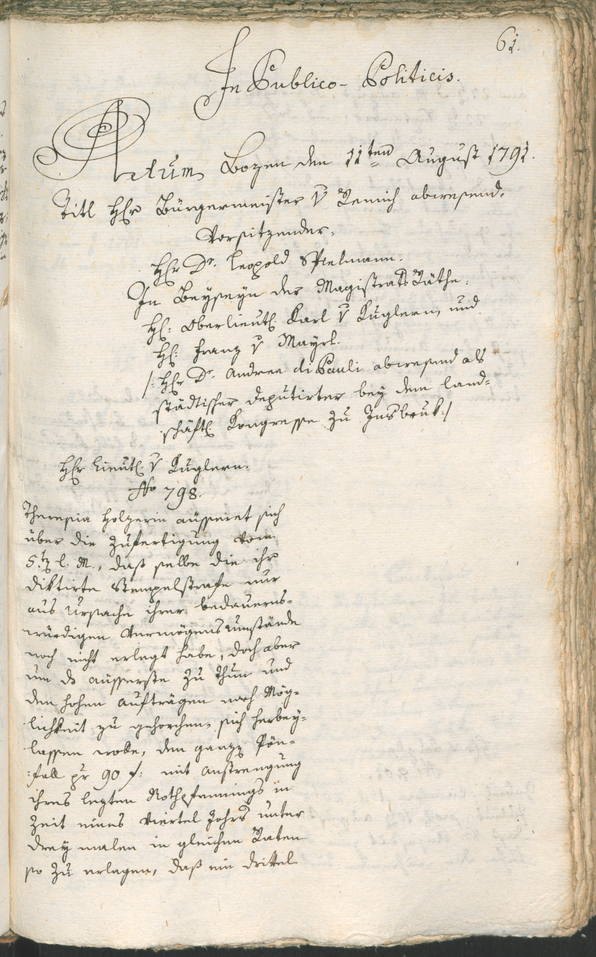 61.
In Publico-Politicis.
Actum Bozen den 11ten August 1791.
Titl Hr Bürgermeister v Remich abwesend.
Vorsitzender,
Hr Dr. Leopold Spielmann.
In Beyseyn der Magistrats Räthe.
H: Oberlieut: Karl v Kuglern, und
H: Franz v Mayrl.
/: Hr Dr. Andrea di Pauli abwesend als
städtischer deputirter bey dem land-
schäftl Kongresse zu Insbruk :/
Hr Lieut: v Kuglern.
No 798.
Theresia Holzerin äusseret sich
über die Zufertigung vom
5. l. M., daß selbe die ihr
diktirte Stempelstrafe nur
aus Ursache ihrer bedauerns-
würdigen Vermögensumstände
noch nicht erlegt habe, doch aber
um ds äusserste zu thun und
den hohen Aufträgen nach Mög-
lichkeit zu gehorchen, sich herbey-
lassen wolle, den ganzen Pön-
fall pr 90 f: mit Anstrengung
ihres lezten Nothpfennings in
Zeit eines Viertel Jahrs unter
drey malen in gleichen Raten
so zu erlagen, daß ein drittel